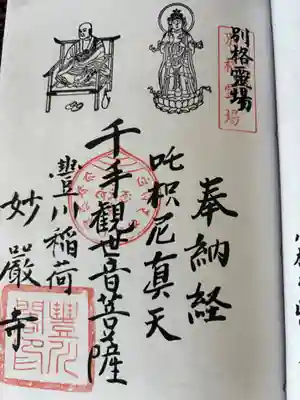 別格霊場
奉納経
吒枳尼真天
千手観世音菩薩
豊川稲荷
妙嚴寺